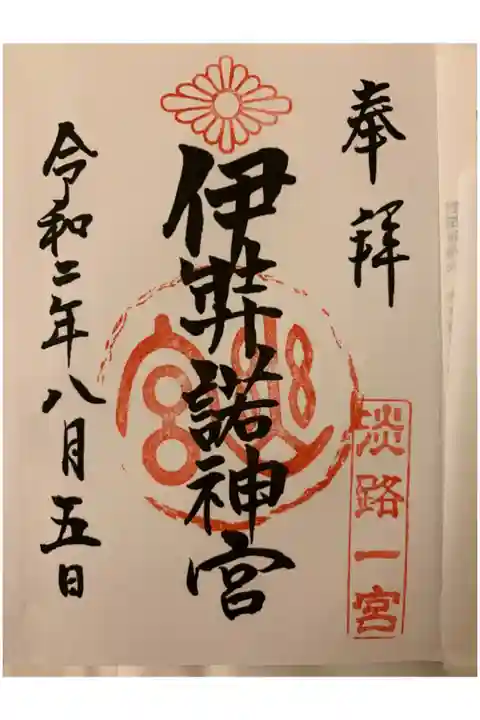 奉拝
淡路一宮
伊弉諾神宮
令和二年八月五日